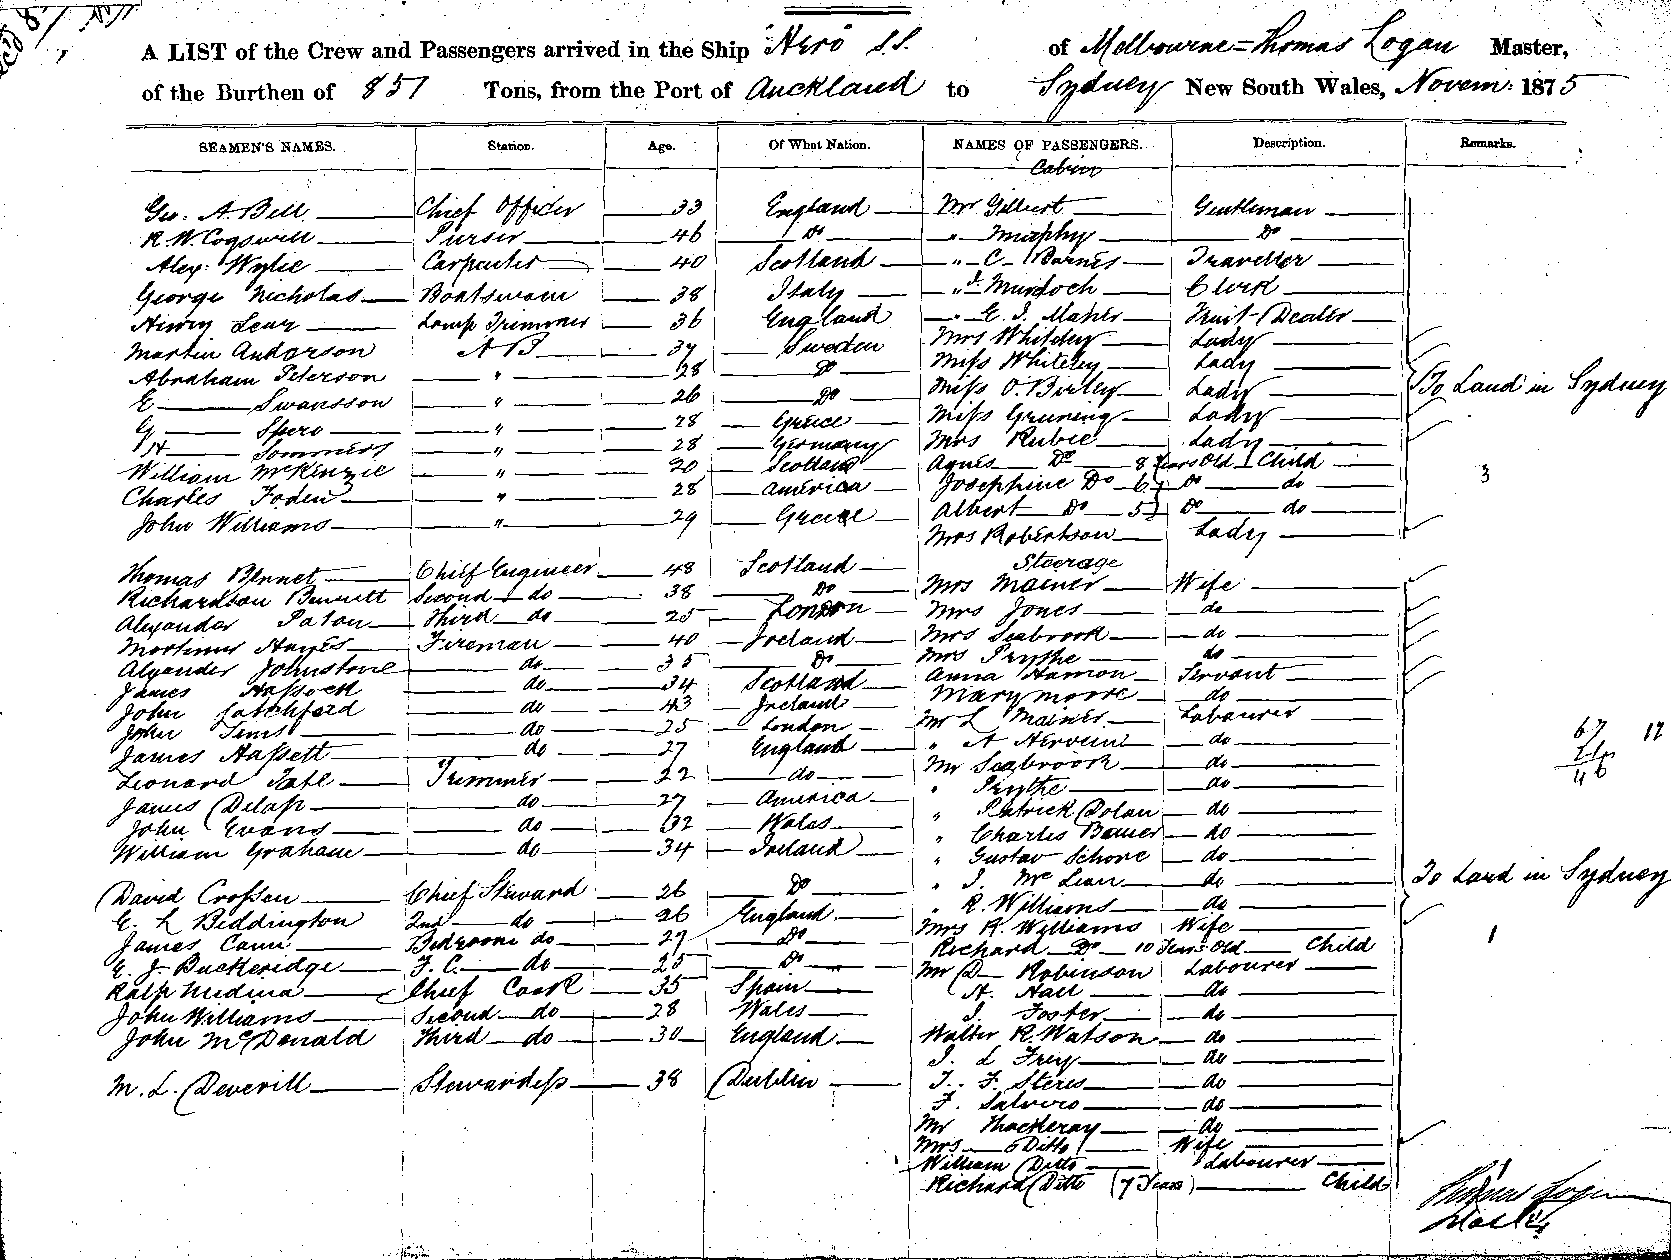 A LIST of the Crew and Passengers arrived in the Ship Hero S.S. of Melbourne = Thomas Logan Master,
of the Burthen of 851 Tons, from the Port of Auckland to Sydney New South Wales, Novem: 1875
SEAMEN'S NAMES. Station. Age. Of What Nation. NAMES OF PASSENGERS. Description. Remarks.
Cabin
Geo. A. Bell Chief Officer 33 England Mr Gilbert Gentleman
R. W. Cogswell Purser 46 Do " Murphy Do
Alex. Wylie Carpenter 40 Scotland " C. Barnes Traveller
George Nicholas Boatswain 38 Italy " J. Murdoch Clerk
Henry Lear Lamp Trimmer 36 England " E. J. Maher Fruit Dealer
Martin Anderson A B 37 Sweden Mrs Whiteley Lady
Abraham Peterson " 28 Do Miss Whiteley Lady
E Swansson " 26 Do Miss O. Birley Lady To Land in Sydney
G Spero " 28 Greece Miss Gruning Lady
H Sommers " 28 Germany Mrs Rubie Lady
William McKenzie " 20 Scotland Agnes Do 8 Years Old Child
Charles Foden " 28 America Josephine Do 6 " Do do 3
John Williams " 29 Greece Albert Do 5 " Do do
Mrs Robertson Lady
Steerage
Thomas Bennet Chief Engineer 48 Scotland Mrs Mainer Wife
Richardson Bennett Second do 38 Do Mrs Jones do
Alexander Paton Third do 25 London Mrs Seabrook do
Mortimer Hayes Fireman 40 Ireland Mrs Prythe do
Alexander Johnstone do 35 Do Anna Hamon Servant
James Hassock do 34 Scotland Mary Moore do
John Latchford do 43 Ireland Mr L Mainer Labourer
John Sims do 25 London " A Nerveini do
James Hassett do 27 England Mr Seabrook do
Leonard Tate Trimmer 22 do " Prythe do
James Delap do 27 America " Patrick Dolan do
John Evans do 32 Wales " Charles Bauer do
William Graham do 34 Ireland " Gustav Schone do
67 12
21
46
David Crossen Chief Steward 26 Do " J. McLean do To Land in Sydney
E. L Beddington 2nd do 26 England " R. Williams do
James Cann Bedroom do 29 Do Mrs R. Williams Wife
E. J. Buckeridge F. C. do 25 Do Richard Do 10 Years Old Child 1
Ralf Medina Chief Cook 35 Spain Mr D Robinson Labourer
John Williams Second do 28 Wales H. Hall do
John McDonald Third do 30 England J. Foster do
Walter R. Watson do
J. L Frey do
M. L. Deverill Stewardess 38 Dublin J. F. Steres do
F. Salvero do
Mr Thackeray do
Mrs Ditto Wife
William Ditto Labourer
Richard Ditto (7 Years) Child
Thomas Logan
Master